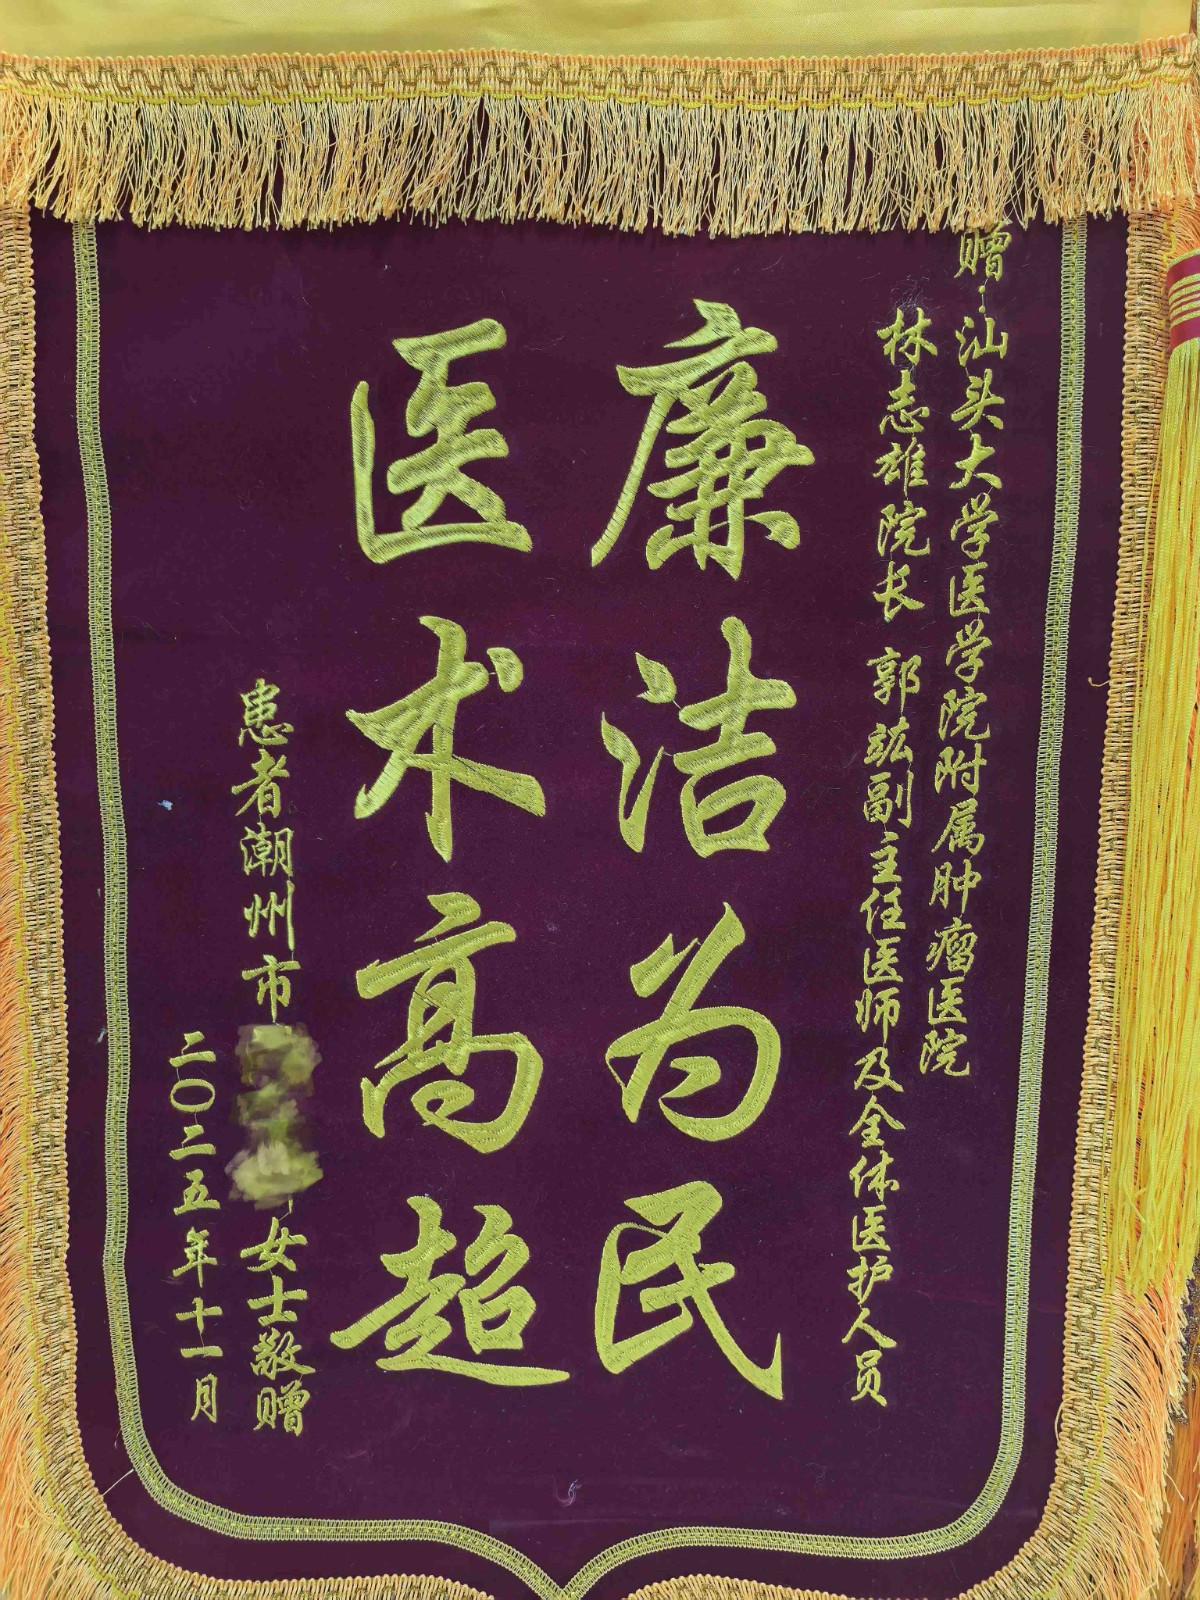 赠：汕头大学医学院附属肿瘤医院
林志雄院长 郭竑副主任医师及全体医护人员
廉洁为民
医术高超
患者潮州市
女士敬赠
二〇二五年十一月